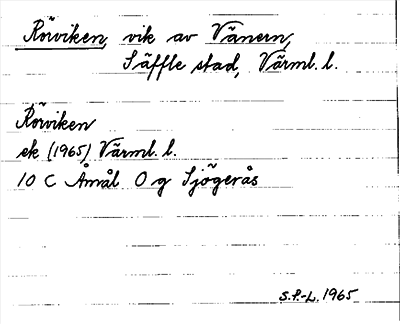 Rörviken, vik av Vänern,
Säffle stad, Värml. l.
Rörviken
ek (1965) Värml. l.
10 C Åmål O g Sjögerås
S.P.-L. 1965